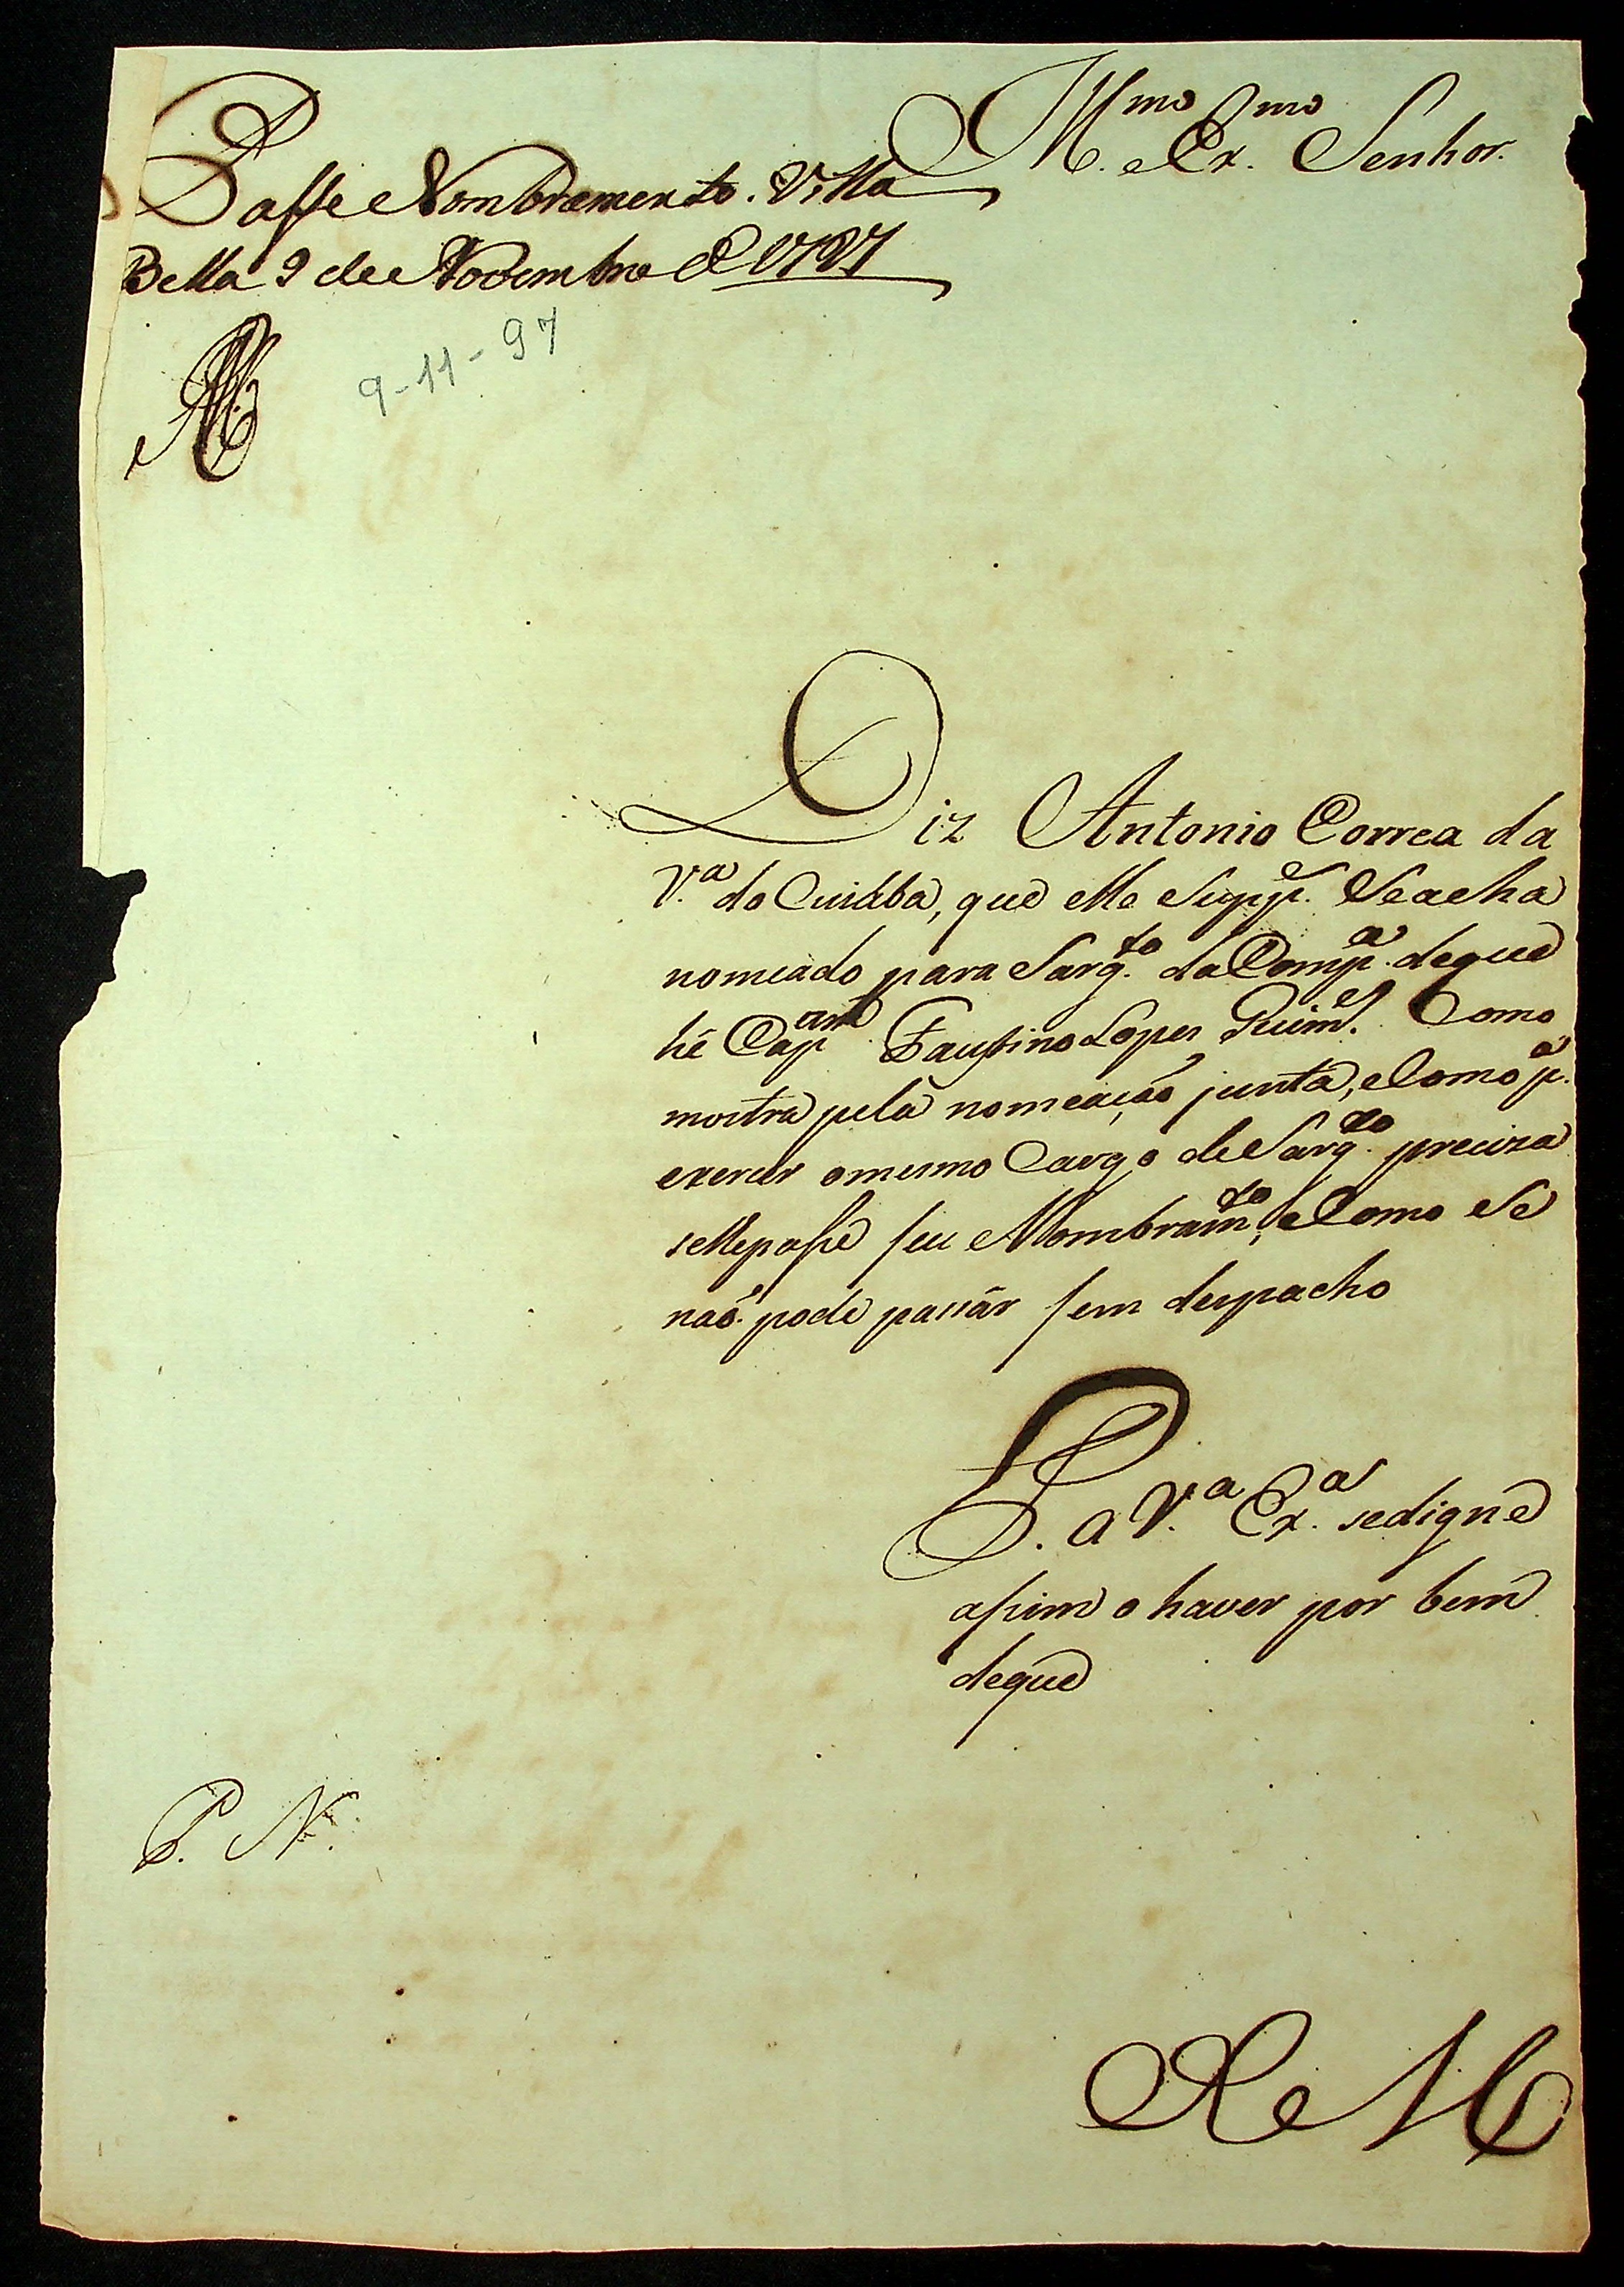 Ill.mo e Ex.mo Senhor.
Passe Nombramento. Villa
Bella 9 de Novembro de 1797
9-11-97
Diz Antonio Correa da
V.ª do Cuiába, que elle Supp.e Se acha
nomeado para Sarg.to da Comp.ª de que
hé Cap.am Faustino Lopes Guim.es Como
mostra pela nomeação junta, e Como p.ª
exerser o mesmo Cargo de Sarg.to preciza
se lhe passe seu Nombram.to, e Como Se
naõ pode passár sem despacho
P. a V.ª Ex.ª se digne
assim o haver por bem
de que
P. N.
E R M